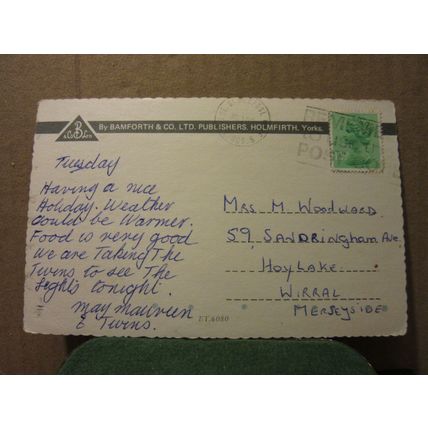 B
& Co Ltd
By BAMFORTH & CO. LTD. PUBLISHERS. HOLMFIRTH. Yorks.
Tuesday
Having a nice
Holiday. Weather
Could be Warmer.
Food is very good
We are Taking The
Twins to see The
Lights tonight.
May Maureen
& Twins.
Mrs M. Woodward
59, Sandringham Ave
Hoylake
Wirral
Merseyside
POST